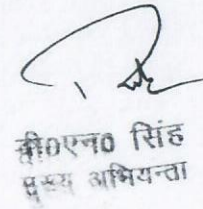 बी0एन0 सिंह
मुख्य अभियन्ता